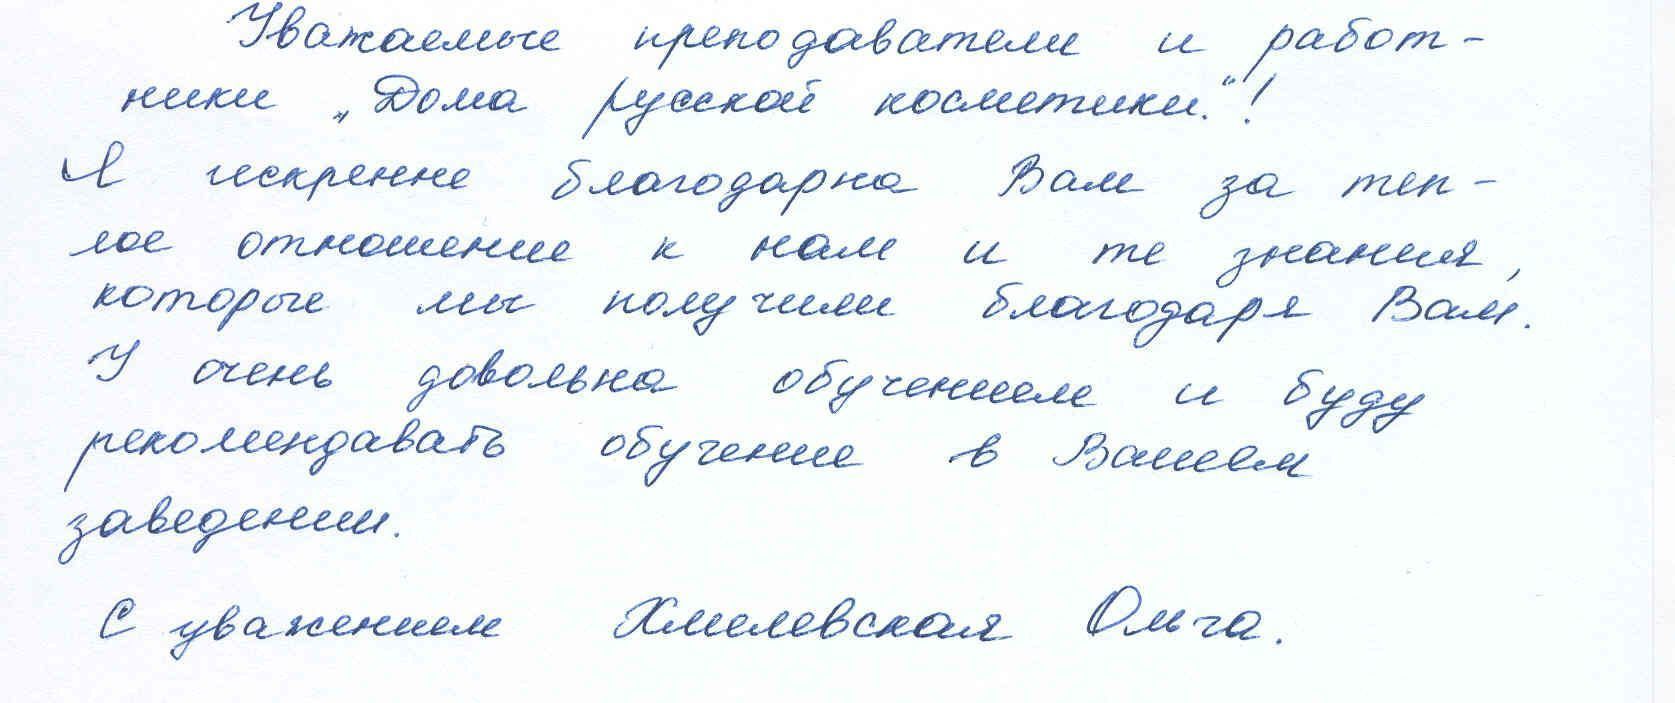 Уважаемые преподаватели и работ-
ники „Дома русской косметики."!
Я искренне благодарна Вам за теп-
лое отношение к нам и те знания,
которые мы получили благодаря Вам.
У очень довольна обучением и буду
рекомендавать обучение в Вашем
заведении.
С уважением Хмелевская Ольга.